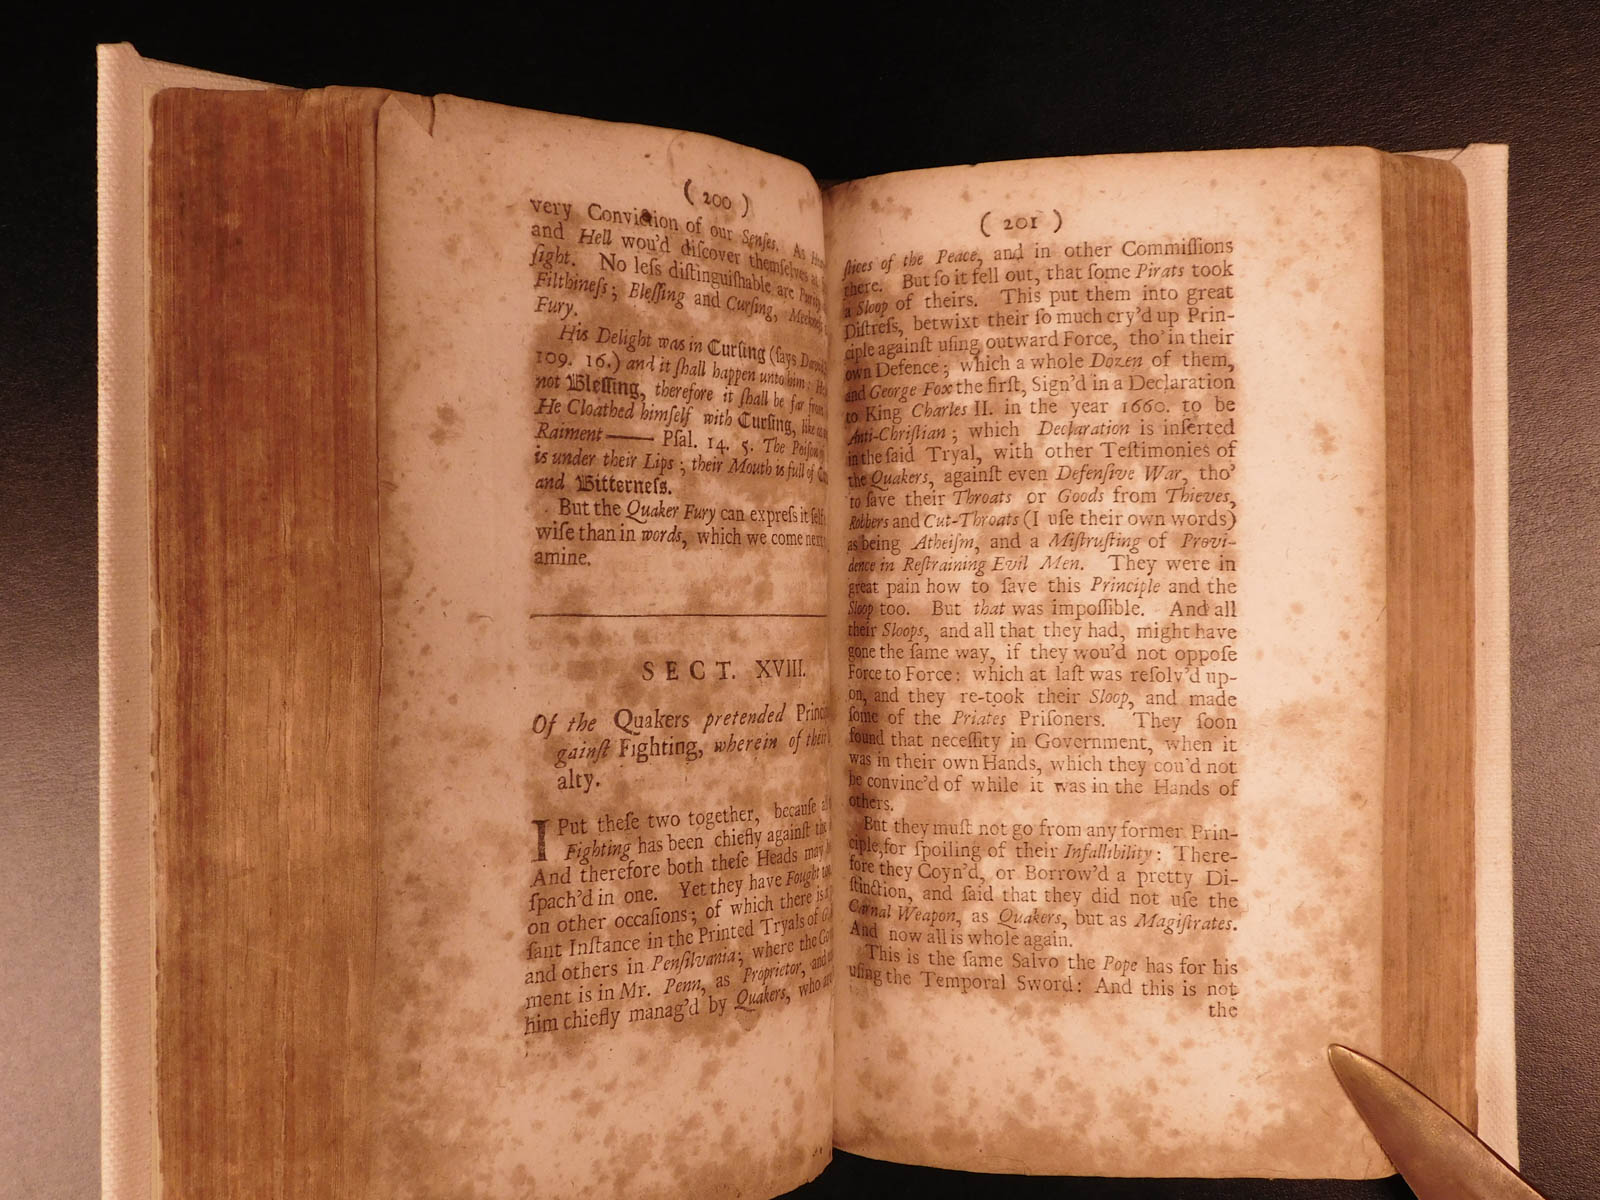 ( 200 )
very Conviction of our Senſes. As
and Hell wou'd diſcover themſelves at
ſight. No leſs diſtinguiſhable are
Filthineſs; Bleſſing and Curſing,
Fury.
His Delight was in Curſing (ſays
109. 16.) and it ſhall happen unto him:
not Bleſſing, therefore it ſhall be far from
He Cloathed himſelf with Curſing, like
Raiment—— Pſal. 14. 5. The
is under their Lips; their Mouth is full of
and Bitterneſs.
But the Quaker Fury can expreſs it ſelf
wiſe than in words, which we come next
amine.
SECT. XVIII.
Of the Quakers pretended
gainſt Fighting, wherein of their
alty.
I Put theſe two together, becauſe
Fighting has been chiefly againſt the
And therefore both theſe Heads may
ſpach'd in one. Yet they have Fought
on other occaſions; of which there is
ſant Inſtance in the Printed Tryals of
and others in Penſilvania; where the
ment is in Mr. Penn, as Proprietor, and
him chiefly manag'd by Quakers, who
( 201 )
ſtices of the Peace, and in other Commiſſions
there. But ſo it fell out, that ſome Pirats took
a Sloop of theirs. This put them into great
Diſtreſs, betwixt their ſo much cry'd up Prin-
ciple againſt uſing outward Force, tho' in their
own Defence; which a whole Dozen of them,
and George Fox the firſt, Sign'd in a Declaration
to King Charles II. in the year 1660. to be
Anti-Chriſtian; which Declaration is inſerted
in the ſaid Tryal, with other Teſtimonies of
the Quakers, againſt even Defenſive War, tho'
to ſave their Throats or Goods from Thieves,
Robbers and Cut-Throats (I uſe their own words)
as being Atheiſm, and a Miſtruſting of Provi-
dence in Reſtraining Evil Men. They were in
great pain how to ſave this Principle and the
Sloop too. But that was impoſſible. And all
their Sloops, and all that they had, might have
gone the ſame way, if they wou'd not oppoſe
Force to Force: which at laſt was reſolv'd up-
on, and they re-took their Sloop, and made
ſome of the Priates Priſoners. They ſoon
found that neceſſity in Government, when it
was in their own Hands, which they cou'd not
be convinc'd of while it was in the Hands of
others.
But they muſt not go from any former Prin-
ciple, for ſpoiling of their Infallibility: There-
fore they Coyn'd, or Borrow'd a pretty Di-
ſtinction, and ſaid that they did not uſe the
Carnal Weapon, as Quakers, but as Magiſtrates.
And now all is whole again.
This is the ſame Salvo the Pope has for his
uſing the Temporal Sword: And this is not
the